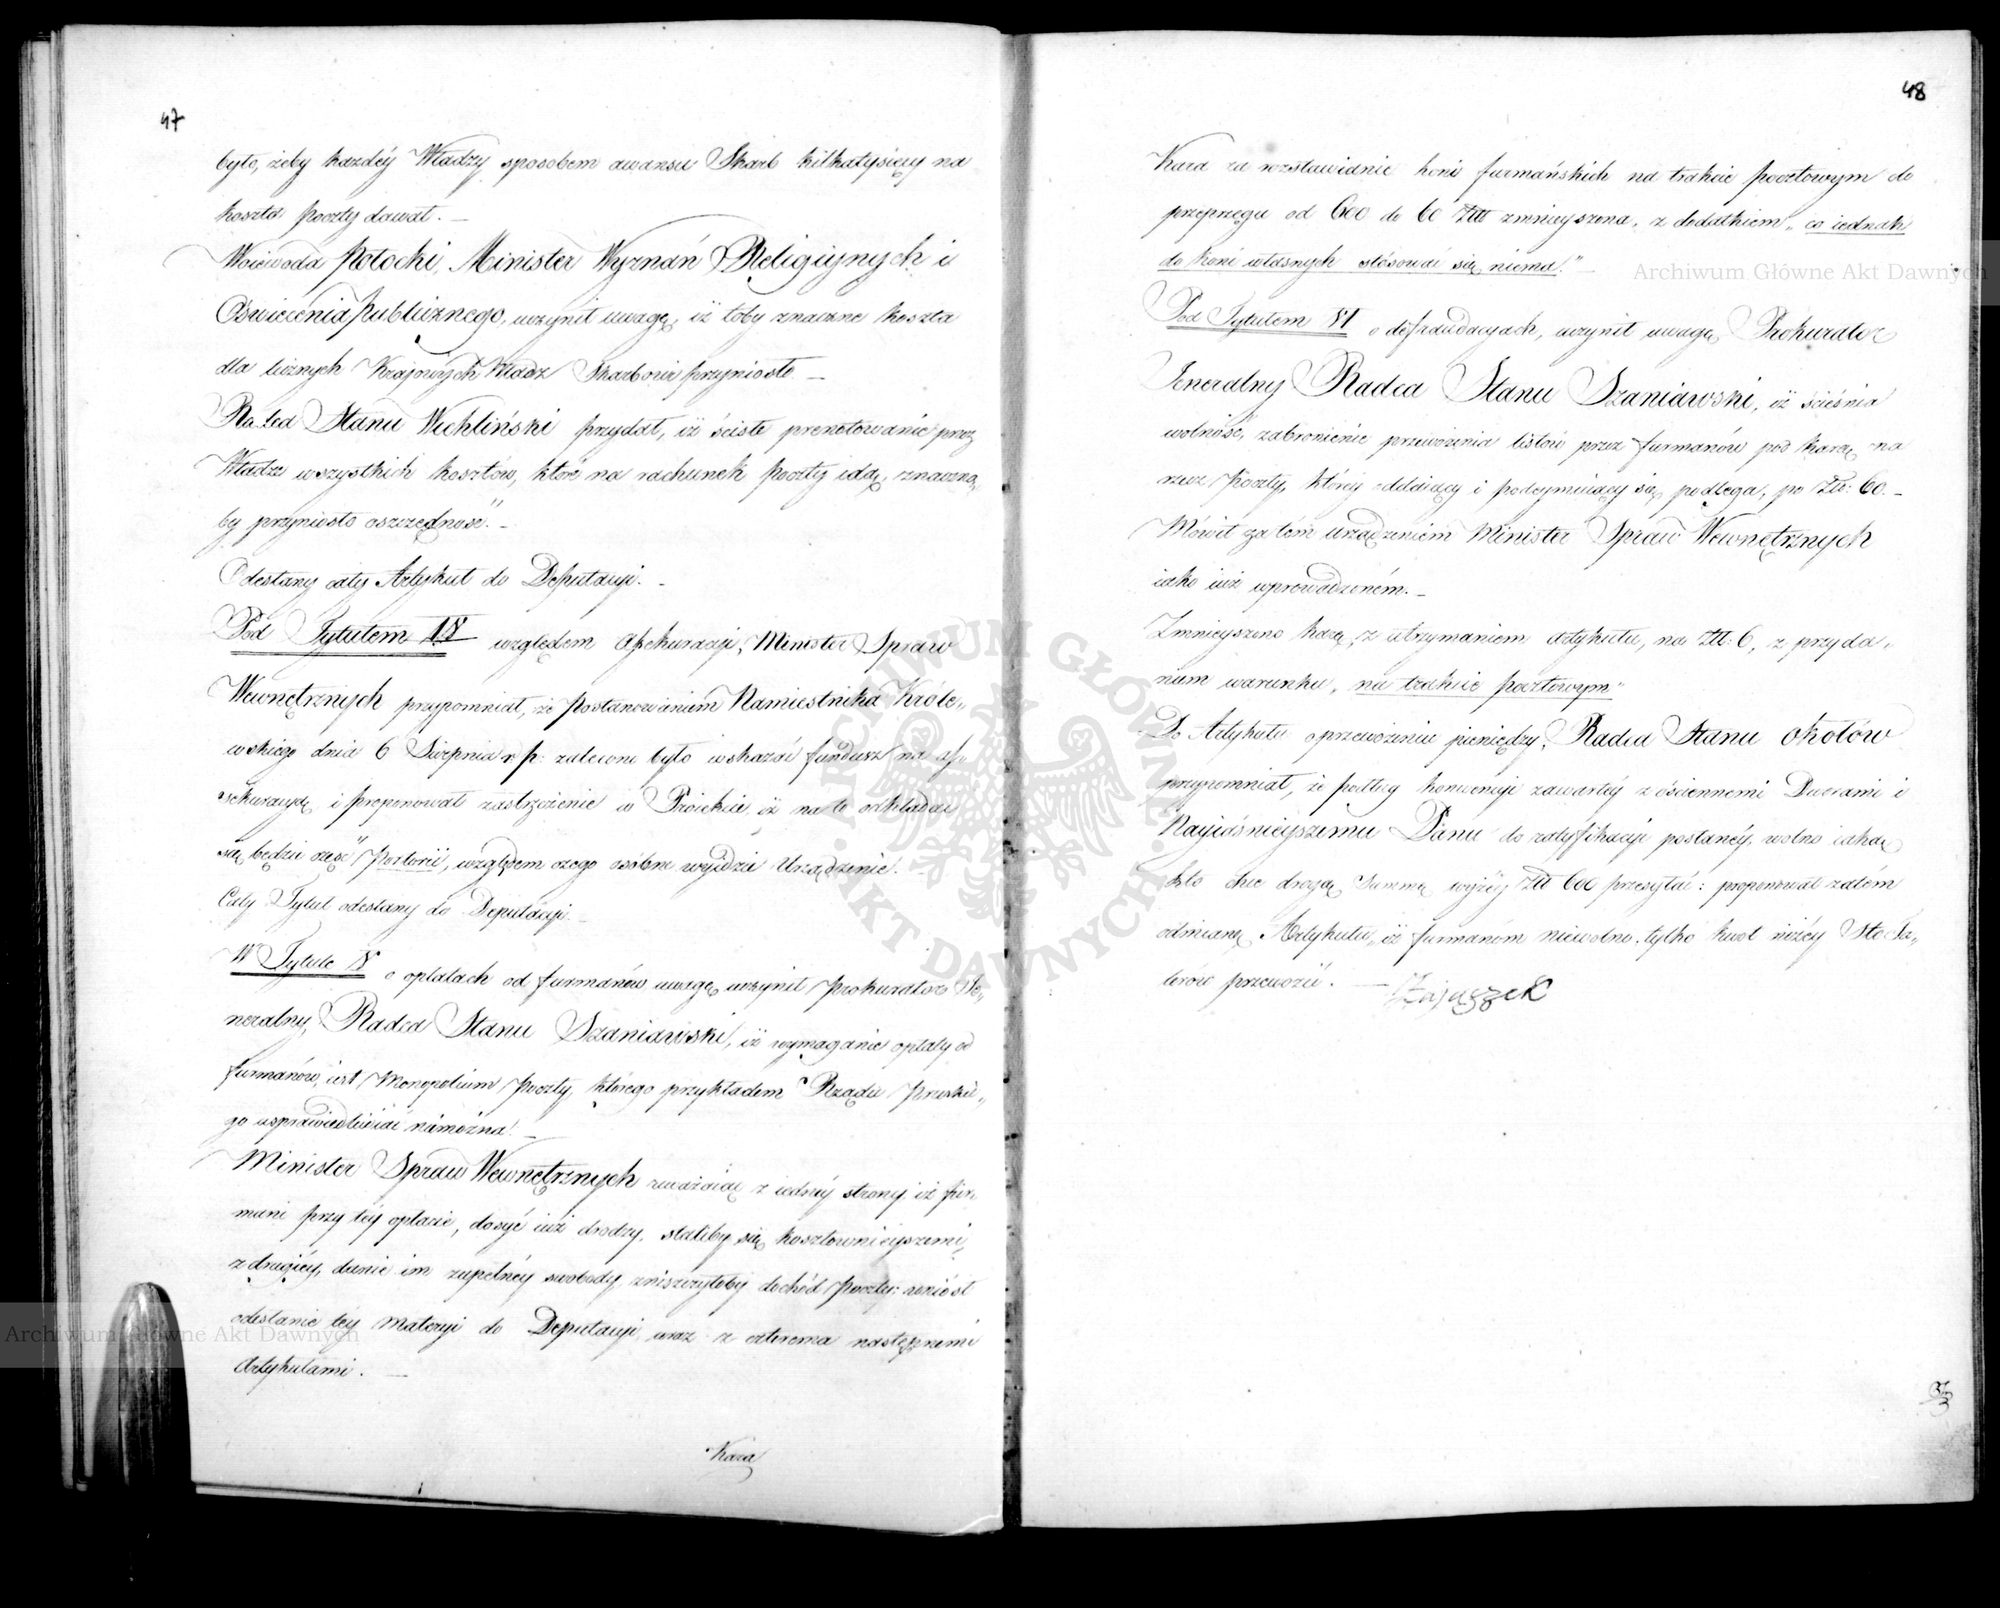 47
było, żeby każdéy Władzy sposobem awansu Skarb kilkatysięcy na
koszta Poczty dawał. —
Woiewoda Potocki, Minister Wyznań Religiynych i
Oświecenia Publicznego, uczynił uwagę, iż toby znaczne koszta
dla licznych Kraiowych Władz Skarbowi przyniosło —
Radca Stanu Wichliński przydał, iż ściśle prenotowanie przez
Władze wszystkich kosztów, które na rachunek Poczty idą, znaczną„
by przyniosło oszczędność." —
Odesłany cały Artykuł do Deputacyi. —
Pod Tytułem IV względem assekuracyi, Minister Spraw
Wewnętrznych przypomniał, że postanowieniem Namiestnika Króle„
wskiego dnia 6 Sierpnia r. p. zalecono było wskazać fundusz na as„
sekuracyą i proponował zastrzeżenie w Proiekcie, iż na to odkładać
się będzie część Portorii, względem czego osóbne wyidzie Urządzenie. —
Cały Tytuł odesłany do Deputacyi —
W Tytule V o opłatach od furmanów uwagę uczynił Prokurator Je„
neralny Radca Stanu Szaniawski, iż wymaganie opłaty od
furmanów, iest Monopolium Poczty, którego przykładem Rządu Pruskie„
go usprawiedliwiać niemożna. —
Minister Spraw Wewnętrznych zważaiąc z iednéy strony, iż fur
mani przy téy opłacie, dosyć iuż drodzy, staliby się kosztownieyszemi,
z drugiéy, danie im zupełnéy swobody, zniszczyłoby dochód Poczty: wniósł
odesłanie téy materyi do Deputacyi, wraz z czterema następnemi
Artykułami. —
Kara
48
Kara za rozstawianie koni furmańskich na trakcie pocztowym do
przeprzęgu od 600 do 60 Złł zmnieyszona, z dodatkiem „ co iednak
do koni własnych stósować się niema." —
Pod Tytułem VI o defraudacyach, uczynił uwagę Prokurator
Jeneralny Radca Stanu Szaniawski, iż ścieśnia
wolność, zabronienie przewożenia listów przez furmanów pod karą na
rzecz Poczty, któréy oddaiący i podeymuiący się podlega, po Złł: 60. —
Mówił za tém urządzeniem Minister Spraw Wewnętrznych
iako iuż wprowadzoném. —
Zmnieyszono karę, z utrzymaniem artykułu, na Złł: 6, z przyda„
niem warunku „ na trakcie pocztowym"
Do Artykułu o przewożeniu pieniędzy, Radca Stanu Okołów
przypomniał, że podług konwencyi zawartéy z ościennemi Dworami i
Nayiaśnieyszemu Panu do ratyfikacyi posłanéy, wolno iaką
kto chce drogą Summę wyżéy Złł 600 przesyłać: proponował zatém
odmianę Artykułu, iż furmanóm niewolno tylko kwot niżéy Sto Ta„
larów przewozić. —
Zajączek
Archiwum Główne Akt Dawnych
Archiwum Główne Akt Dawnych
ARCHIWUM GŁÓWNE AKT DAWNYCH